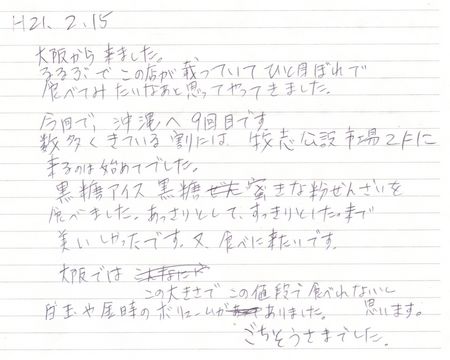 H21. 2. 15
大阪から来ました。
るるぶでこの店が載っていてひと目ぼれで
食べてみたいなあと思ってやってきました。
今回で、沖縄へ9回目です
数多くきている割には牧志公設市場2Fに
来るのは始めてでした。
黒糖アイス黒糖蜜きな粉ぜんざいを
食べました。あっさりとして、すっきりとした味で
美しかったです。又、食べに来たいです。
大阪では
この大きさでこの値段で食べれないし
白玉や金時のボリュームがありました。思います。
ごちそうさまでした。